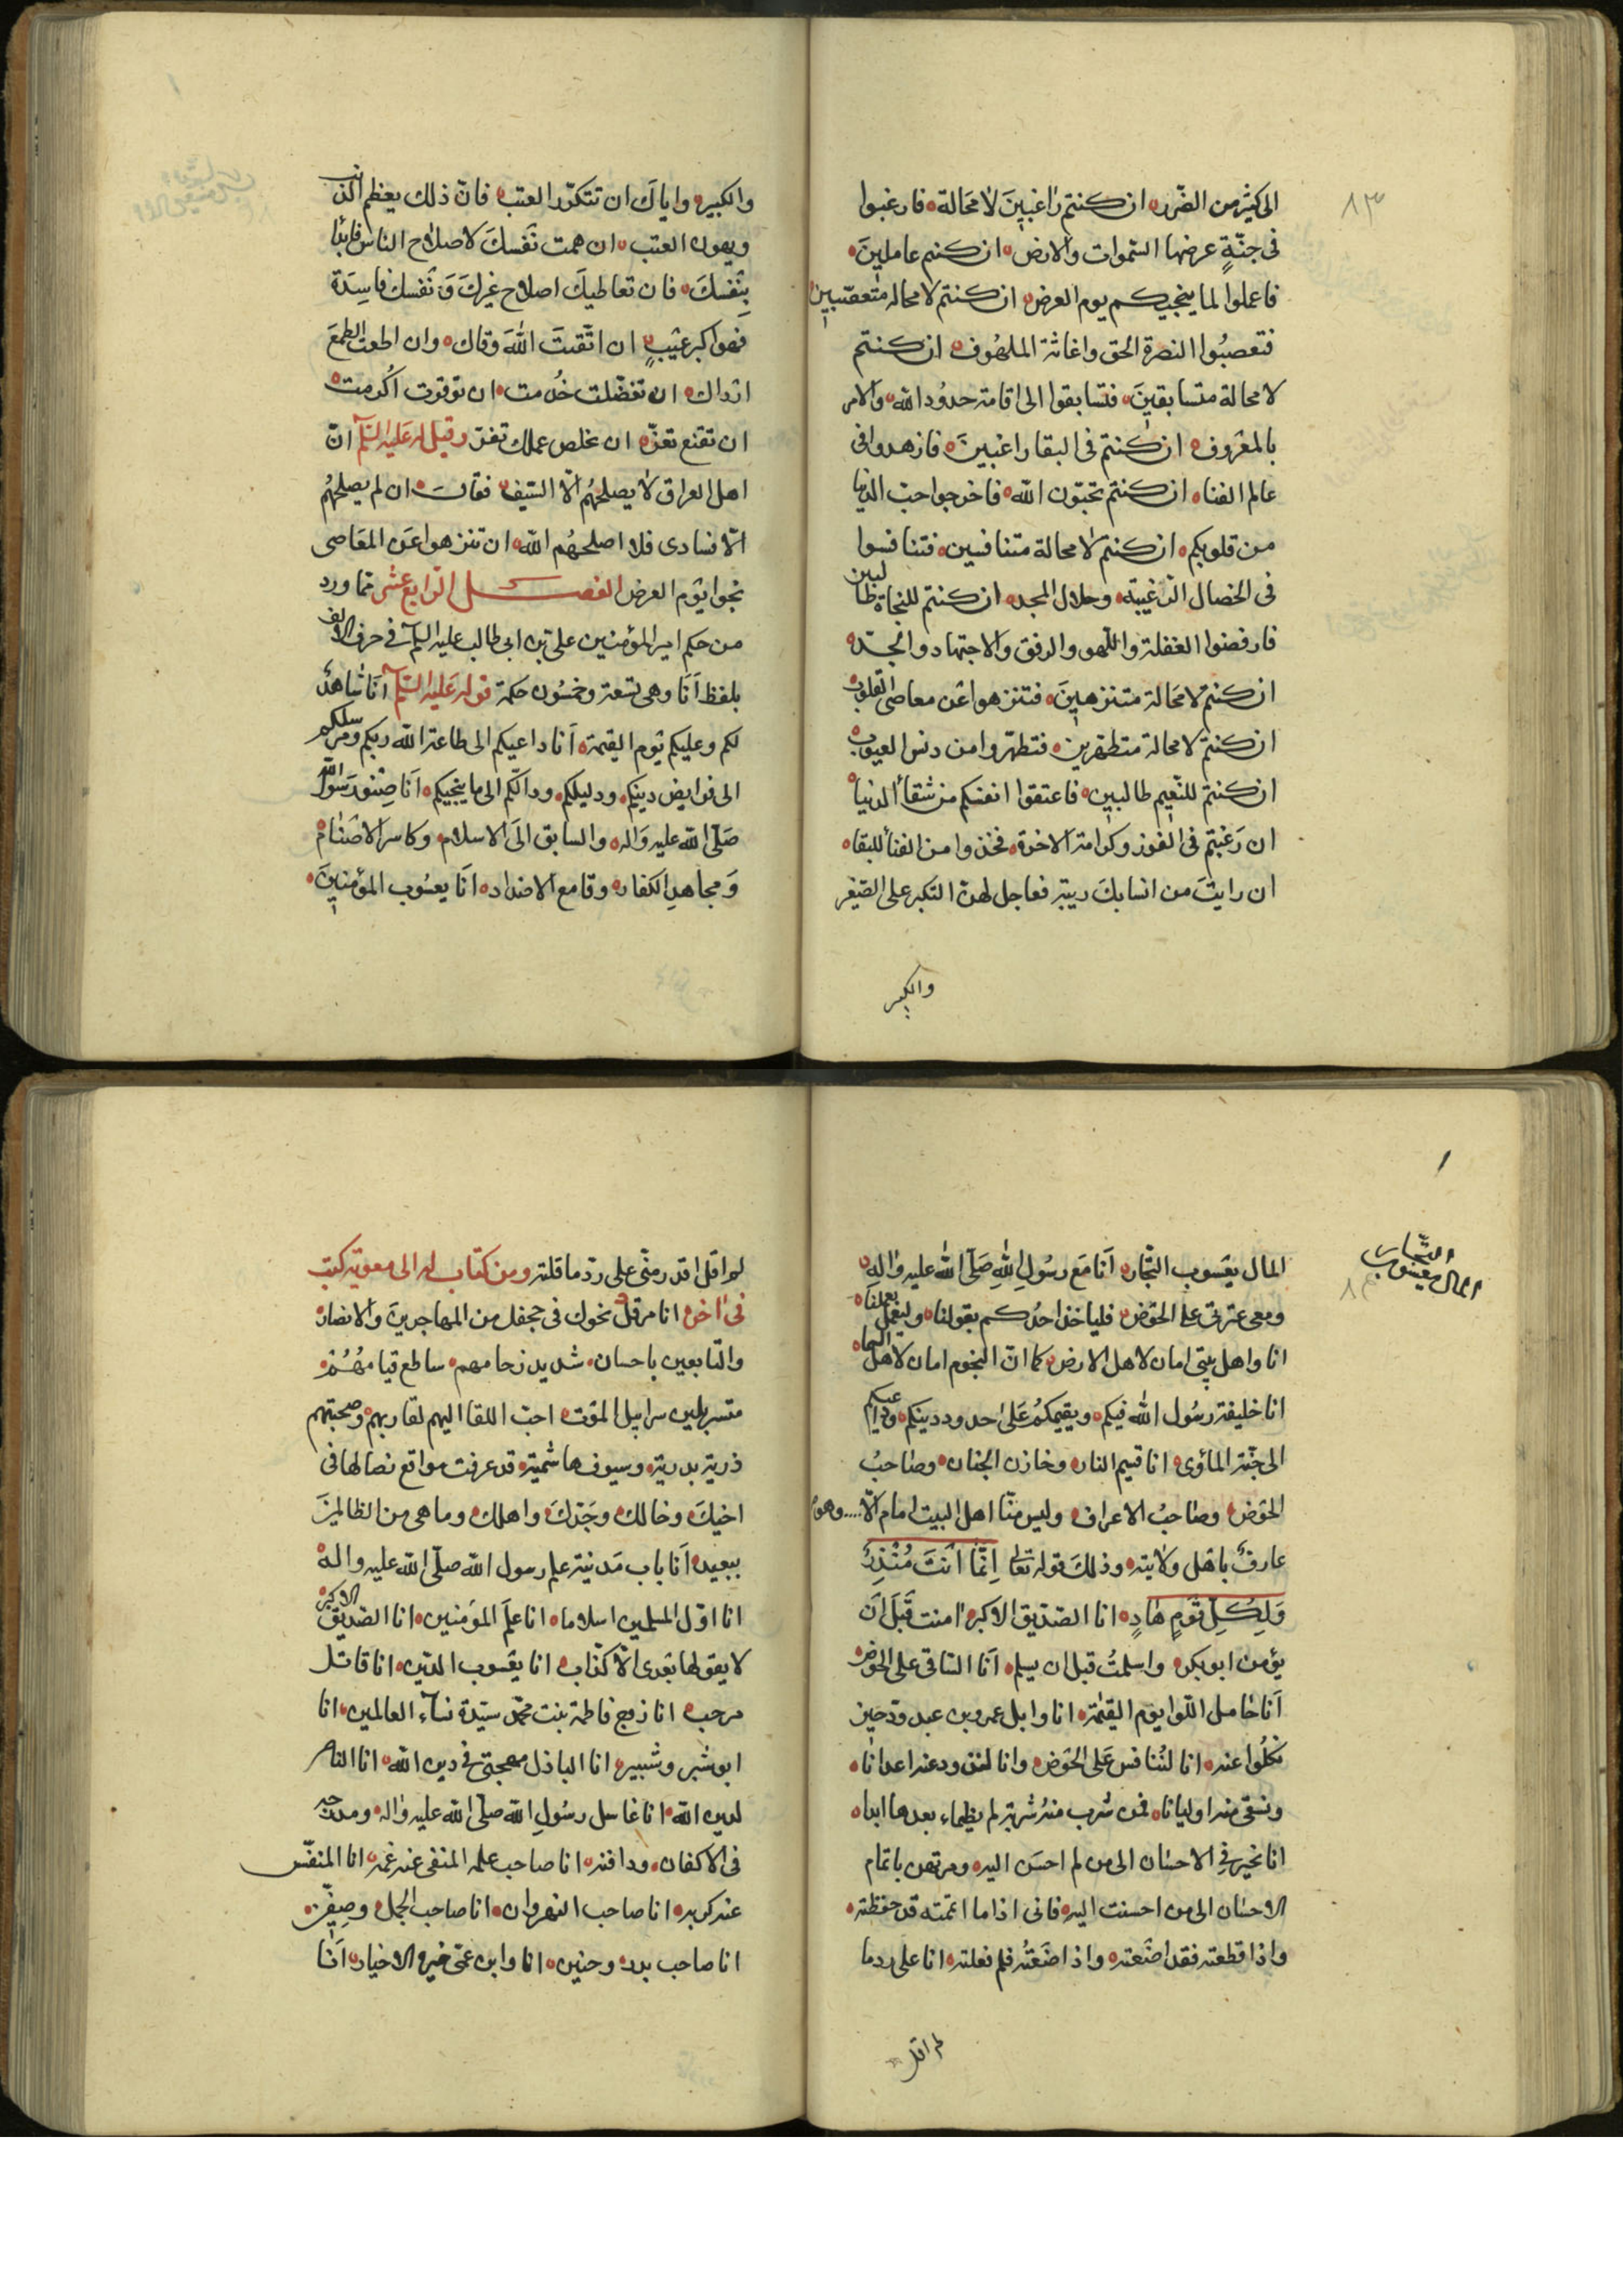 ٨٣
الى كثير من الضّرر ان كنتم راغبينَ لا مَحَالة فارغبوا
فى جنّةٍ عرضها السّموات والارض ان كنتم عاملينَ
فاعملوا لما ينجيكم يوم العرض ان كنتم لا محاله متعصّبين
فتعصبُوا النصرة الحق واغاثة الملهُوف ان كنتم
لا محالة متسابقينَ فتسابقوا الى اقامة حدُود الله والامر
بالمعْروف ان كنتم فى البقا راغبينَ فازهدوا فى
عالم الفناه ان كنتم تحبّون الله فاخرجوا حبّ الدنيا
من قلوبكم ان كنتم لا محالة متنافسين فتنافسوا
فى الخصال الرّغيبة وخلال المجد ان كنتم للنجاة طالبين
فارفضوا الغفلة واللّهو والرفق والاجتهاد والجدّ
ان كنتم لا مَحَالة متنزهينَ فتنزهوا عن معاصى القلوب
ان كنتم لا محالة متطهّرين فتطهّروا من دنس العيوب
ان كنتم للنّعيم طالبين فاعتقوا انفسكم من شقاٴ الدنيا
ان رَغبتم فى الفوز وكرامة الاخرة فخذوا من الفناٴ للبقاه
ان رايتَ من انسابكَ ريبة فعاجل لهن التكبر على الصّغير
والكبير
والكبير واياكَ ان تتكرّر العتب فانّ ذلك يعظم الذنب
ويهون العتب ان همت نَفسكَ لاصلاح الناس فابدا
بِنَفسكَ فان تعاطيكَ اصلاح غيركَ وَنَفسك فاسِدَة
فهو اكبر عَيْبٍ ان اتّقيتَ اللهَ وقاك وان اطعت الطمعَ
ارداك ان تفضّلت خُدمت ان توقرت اُكرمت
ان تقنع تعزّ ان تخلص عملك تفز وقيل له عَليه السّلم انّ
اهل العراق لا يصلحهُم الّا السّيف فقالَ ان لم يصلحهُم
الّا فسادى فلا اصلحهُم الله ان تنزهوا عَن المعَاصى
نجوا يوم العرض الفصــل الرّابع عشر مما ورد
من حكم امير المؤمنين على بن ابى طالب عليه السلم فى حرف الالف
بلفظ اَنا وهى تسعة وخمسُون حكمة قوله عَليه السّلم اَنا شاهدٌ
لكم وعليكم يَوم القيٰمة اَنا داعيكم الى طاعة الله ربكم ومرسلكم
الى فرايض دينكم ودليلكم ودالّكم الى ما ينجيكم اَنا صِنو رَسُول الله
صَلّى الله عليه وَاله والسابق الىَ الاسلام وكاسر الاصْنام
وَمجاهِد الكفار وقامع الاضداد اَنا يعسُوب المؤمنين
المال يعسوب
المال يعَسوب التّجار اَنا مَع رسُولِ اللهِ صَلّى الله عليه واٰلهِ
ومعى عترتى على الحَوض فلياخذ احدُكم بقولنا وليعَمل بعملنا
انا واهل بيتى امان لاهل الارض كما انّ النجوم امان لاهل السّماه
انا خليفة رسُول الله فيكم ويقيمكمُ عَلى حدود دينكم وداعيكم
الى جنّة المأوى انا قسيم النار وخازن الجنان وصَاحبُ
الحَوض وصَاحبُ الاعراف وليس منّا اهل البيت امام الّا.... وهو
عارفٌ باهل ولايته وذلكَ قوله تعالى اِنَّما اَنتَ مُنْذِرٌ
وَلِكلِّ قَومٍ هَادٍ انا الصّدّيق الاكبر امنت قَبلَ اَن
يؤمن ابو بكر واسلمتُ قبل ان يسلم اَنا السّاقى على الحوَض
اَنا حَامل اللّوا يوَم القيٰمة انا وابل عمرو بن عبد ودّ حين
نكلُوا عنه انا لنُنافس عَلى الحَوض وانا لنذود عنه اعدانا
ونسقى منه اوليانا فمن شرب منهُ شربة لم يظماء بعدها ابدا
انا مخير فى الاحسَان الى من لم احسَن اليه ومرتهن باتمام
الاحسَان الى من احسنت اليه فانى اذا ما اتممته قد حفظته
واذا قطعته فقد اضَعته واذا اضَعَتُه فلم فعلته انا على رد ما
لم اقل
لم اقل اقدر منّى على ردّ ما قلته ومن كتاب له الى معوية كتب
فى اٰخر انا مرقل نحوك فى جحفل من المهاجرينَ والانصار
والتابعين باحسان شديد زحامهم ساطع قيامهُمْ
متسربلين سرابيل الموَت احبّ اللقا اليهم لقا ربهم وصحبتهم
ذرية بدرية وسيوف هاشميّة قد عرفت مواقع نصالها فى
اخيكَ وخالك وجَدّكَ واهلك وما هى من الظالمينَ
ببعيد اَنا باب مَدنية علم رسول الله صلّى الله عليه واله
انا اوّل المسلمين اسلاما انا علَم المؤمنين انا الصّدّيق الاكبر
لا يقولها بعَدى الّا كذّاب انا يعَسوب الدّين انا قاتل
مرحب انا زوج فاطمة بنت محمّد سيّدة نساء العالمين انا
ابو شبر وشبير انا الباذل مهجتى فى دين الله انا الناصر
لدين الله انا غاسل رسُولِ الله صلّى الله عليه واٰله ومدرجه
فى الاكفان ودافنه انا صاحب علمه المنفى عنه غمه انا المنفّس
عنه كربه انا صاحب النهروان انا صاحب الجمل وصِفّين
انا صاحب بدر وحنين انا وابن عمّى خيرة الاخيار اَنا